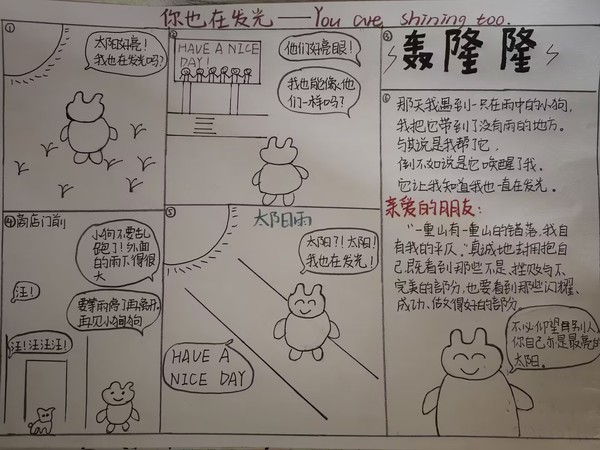 你也在发光——You are shining too.
①
太阳好亮!
我也在发光吗?
②
HAVE A NICE
DAY!
他们好亮眼!
我也能像他
们一样吗?
③
轰隆隆
④商店门前
小狗不要乱
跑了!外面
的雨下得很
大
汪!
要等雨停了再离开,
再见小狗狗
汪!汪汪汪!
⑤
太阳雨
太阳?!太阳!
我也在发光!
HAVE A
NICE DAY
⑥
那天我遇到一只在雨中的小狗,
我把它带到了没有雨的地方。
与其说是我帮了它,
倒不如说是它唤醒了我。
它让我知道我也一直在发光。
亲爱的朋友:
“一重山有一重山的错落,我自
有我的平仄。”真诚地去拥抱自
己,既看到那些不足、挫败与不
完美的部分,也要看到那些闪耀、
成功、做得好的部分
不必仰望别人,
你自己亦是最亮的
太阳。